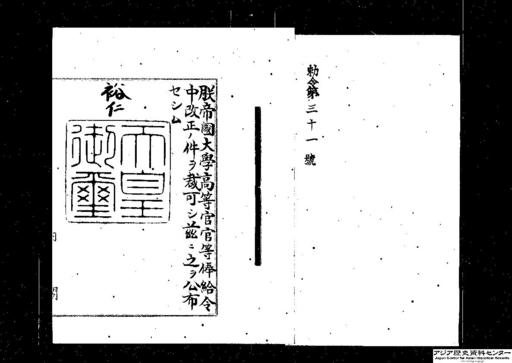 勅令第三十一號
朕帝國大學高等官官等俸給令
中改正ノ件ヲ裁可シ茲ニ之ヲ公布
セシム
裕仁
天皇
御璽
アジア歴史資料センター
Japan Center for Asian Historical Records